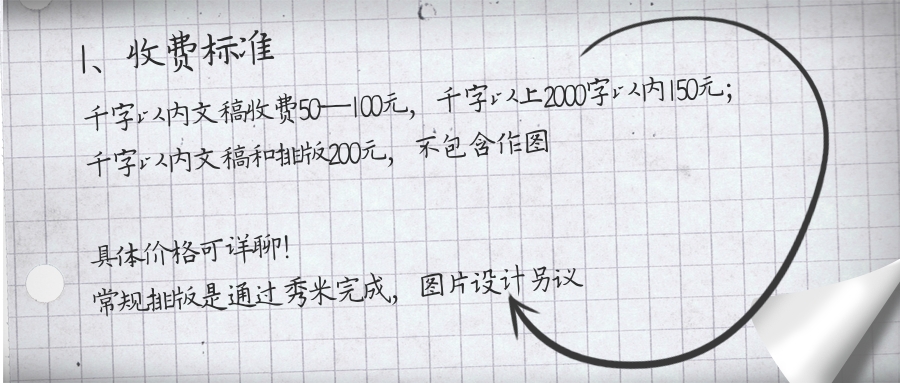 1、收费标准
千字以内文稿收费50—100元，千字以上2000字以内150元；
千字以内文稿和排版200元，不包含作图
具体价格可详聊！
常规排版是通过秀米完成，图片设计另议